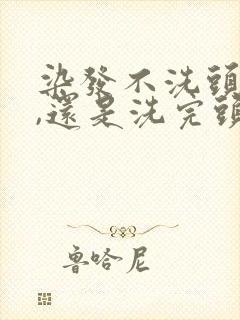 染發不洗頭
,還是洗完頭
魯哈尼